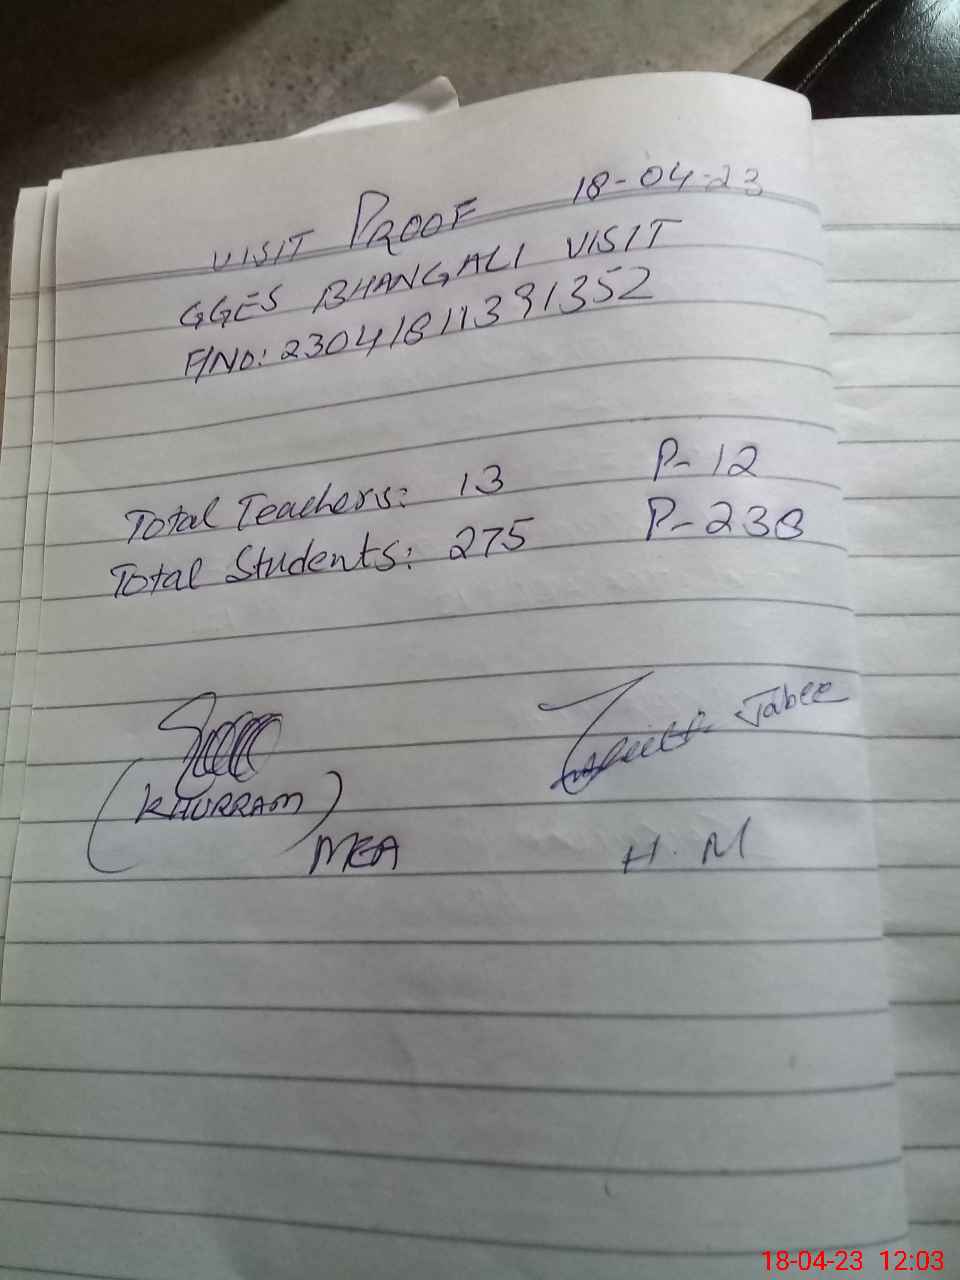 VISIT PROOF 18-04-23
GGES BHANGALI VISIT
F/NO: 23041811391352
Total Teachers: 13 P-12
Total Students: 275 P-238
(KHURRAM) Jabee
MEA H.M
18-04-23 12:03